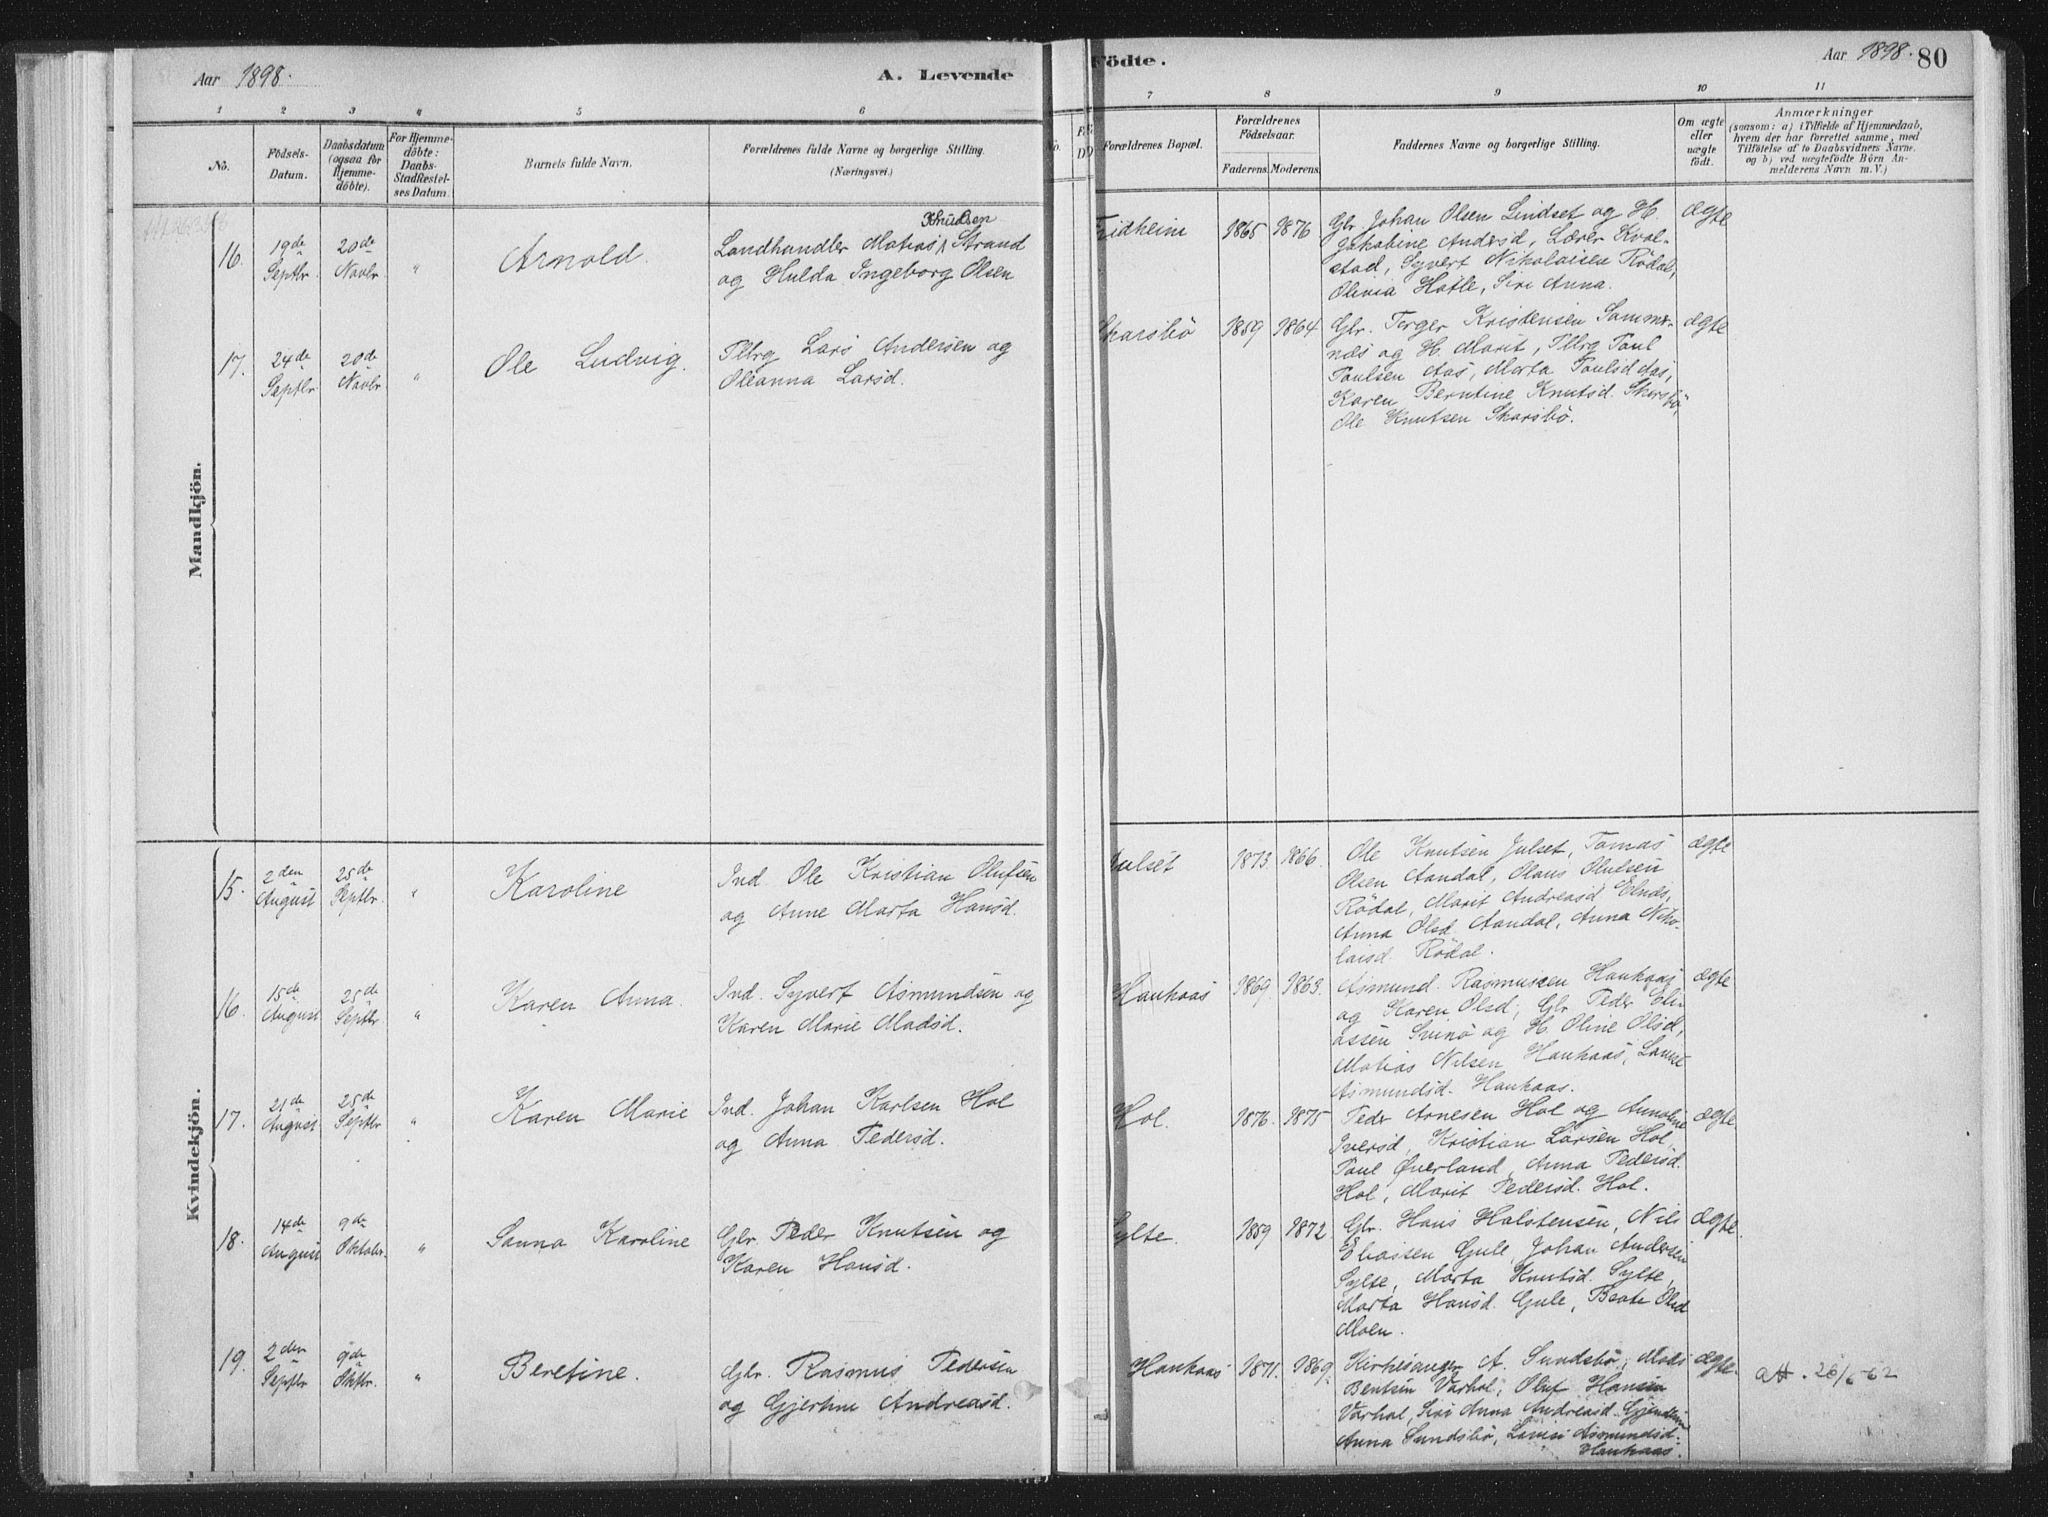 Aar 1898.
A. Levende
Födte.
Aar 1898. 80
1 2 3 4 5 6 7 8 9 10 11
No.
Födsels-
Datum.
Daabsdatum
(ogsaa for
Hjemme-
döbte).
For Hjemme-
döbte:
Daabs-
Stadfæstel-
ses Datum.
Barnets fulde Navn.
Forældrenes fulde Navne og borgerlige Stilling.
(Næringsvei.)
Forældrenes Bopæl.
Forældrenes
Födselsaar.
Faderens. Moderens.
Faddernes Navne og borgerlige Stilling.
Om ægte
eller
uægte
födt.
Anmærkninger
(saasom: a) i Tilfælde af Hjemmedaab,
hvem der har forrettet samme, med
Tilföielse af to Daabsvidners Navne,
og b) ved uægtefödte Börn An-
melderens Navn m. V.)
Mandkjön.
16. 19de Septbr. 20de Novbr. " Arnold.
Knudsen
Landhandler Matias Strand
og Hulda Ingeborg Olsen
Fridheim 1865 1876
Gbr. Johan Olsen Lindset og H.
Jakobine Andersd, Lærer Kval-
stad, Syvert Nikolaisen Rödal,
Olivia Hatle, Siri Anna.
ægte
17. 24de Septbr. 20de Novbr. " Ole Ludvig.
Lars Andersen og
Oleanna Larsd.
Skarsbö 1859 1864
Gbr. Terger Kristensen Sams-
næs og H. Marit, Poul
Poulsen Aas, Marta Poulsd Aas,
Karen Berntine Knutsd. Skarsbö,
Ole Knutsen Skarsbö.
ægte
Kvindekjön.
15. 2den August 25de Septbr. " Karoline
Ind Ole Kristian Olufsen
og Anne Marta Hansd.
Julset 1873 1866.
Ole Knutsen Julset, Tomas
Olsen Aandal, Mons Olufsen
Rödal, Marit Andreasd Elnæs,
Anna Olsd Aandal, Anna Niko-
laisd. Rödal.
ægte
16. 15de August 25de Septbr. " Karen Anna.
Ind. Syvert Asmundsen og
Karen Marie Madsd.
Haukaas 1869 1863.
Asmund Rasmussen Haukaas
og Karen Olsd, Gbr. Peder Eli-
assen Svinö og H. Oline Olsd,
Matias Nilsen Haukaas,
Asmundsd. Haukaas.
ægte
17. 21de August 25de Septbr. " Karen Marie
Ind. Johan Karlsen Hol
og Anna Pedersd.
Hol. 1876. 1875
Peder Arnesen Hol og Annoline
Iversd, Kristian Larsen Hol,
Paul Øverland, Anna Pedersd.
Hol, Marit Pedersd. Hol.
ægte.
18. 14de August 9de Oktobr. " Sanna Karoline
Gbr. Peder Knutsen og
Karen Hansd.
Sylte. 1859 1872
Gbr. Hans Halstensen, Nils
Eliassen Gule, Johan Andersen
Sylte, Marta Knutsd. Sylte,
Marta Hansd. Gule, Beate Olsd
Moen.
ægte.
19. 2den Septbr 9de Oktbr. " Beretine.
Gbr. Rasmus Pedersen
og Gjertine Andreasd.
Haukaas 1871. 1869.
Kirkesanger A. Sundsbö, Mads
Bentsen Varhol, Oluf Hansen
Varhol, Siri Anna Andreasd. Gjendem
Anna Sundsbö, Asmundsd.
Haukaas.
ægte. att. 26/6-62